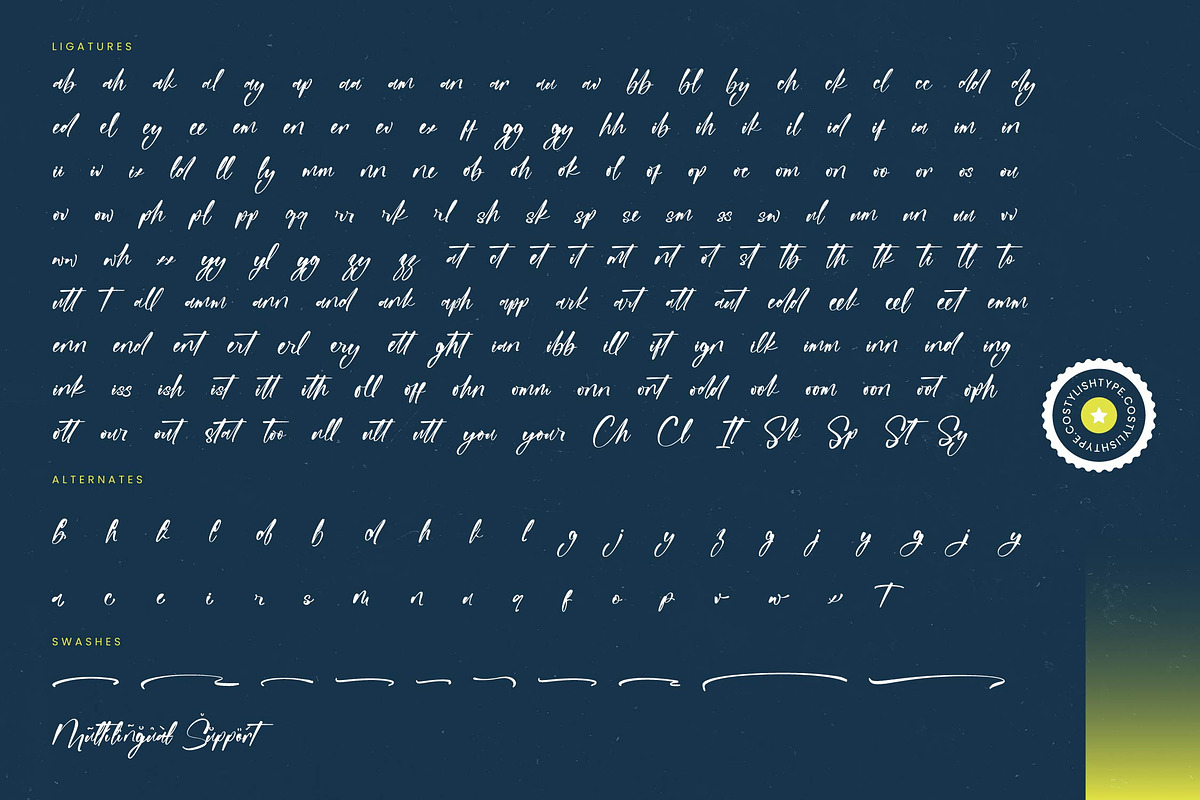 LIGATURES
ab ah ak al ay ap aa am an ar au av bb bl by ch ck cl cc dd dy
ed el ey ee em en er ev ex ff gg gy hh ib ih ik il id if ia im in
ii iv ix ld ll ly mm nn ne ob oh ok ol of op oe om on oo or os ou
ov ow ph pl pp qq rr rk rl sh sk sp se sm ss sw ul um un uu vv
ww wh xx yy yl yg zy zz at ct et it mt nt ot st tb th tk ti tt to
utt T all amm ann and ank aph app ark art att aut edd eek eel eet emm
enn end ent ert erl ery ett ght ian ibb ill ift ign ilk imm inn ind ing
ink iss ish ist itt ith oll off ohn omm onn ont odd ook oom oon oot oph
ott our out stat too ull utt you your Ch Cl It Sh Sp St Sy
ALTERNATES
b h k l d b d h k l g j y z g j y g j y
a c e i r s m n u q f o p v w x T
SWASHES
Multilingual Support
COSTYLISHTYPE.COSTYLISHTYPE.